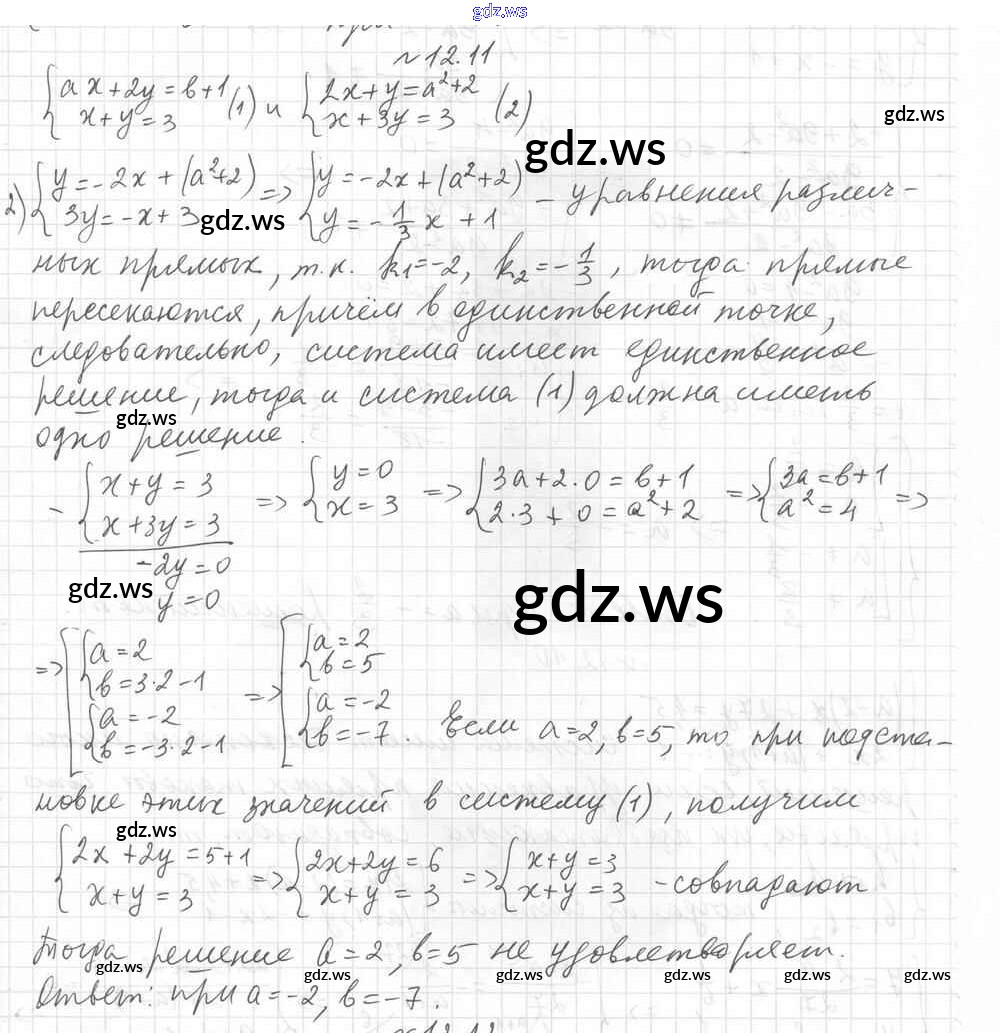 gdz.ws
№12.11
{ax+2y=b+1 {2x+y=a²+2
{x+y=3 (1) и {x+3y=3 (2)
gdz.ws
gdz.ws
2) {y=-2x+(a²+2) => {y=-2x+(a²+2) - уравнения различ-
{3y=-x+3 {y=-1/3 x+1
gdz.ws
ных прямых, т.к. k₁=-2, k₂=-1/3, тогда прямые
пересекаются, причём в единственной точке,
следовательно, система имеет единственное
решение, тогда и система (1) должна иметь
gdz.ws
одно решение.
- {x+y=3 => {y=0 => {3a+2·0=b+1 => {3a=b+1 =>
{x+3y=3 {x=3 {2·3+0=a²+2 {a²=4
-2y=0
gdz.ws
y=0
gdz.ws
=> [{a=2 => [{a=2
{b=3·2-1 {b=5
{a=-2 {a=-2
{b=-3·2-1 {b=-7. Если a=2, b=5, то при подста-
новке этих значений в систему (1), получим
gdz.ws
{2x+2y=5+1 => {2x+2y=6 => {x+y=3
{x+y=3 {x+y=3 {x+y=3 -совпадают
Тогда решение a=2, b=5 не удовлетворяет.
gdz.ws gdz.ws gdz.ws gdz.ws gdz.ws
Ответ: при a=-2, b=-7.